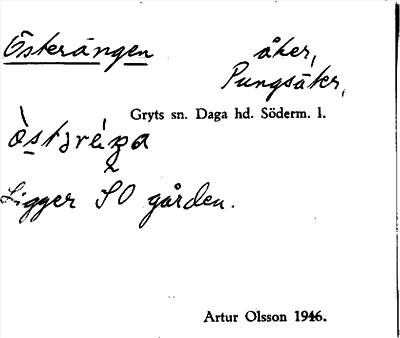 Österängen åker,
Pungsåkr,
Gryts sn. Daga hd. Söderm. l.
Ligger SO gården.
Artur Olsson 1946.